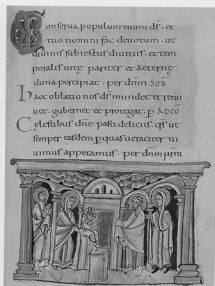 Conserva populum tuum ds. et
tuo nomini fac devotum. ut
divinis subiectus officiis. et tem
poralis vitę pariter et aeternę
dona percipiat. per dnm
Haec oblatio nos ds mundet et reno
vet. gubernet et protegat. p
Celestibus dne pasti deliciis. qs ut
semper eadem p quas veraciter vi
vimus appetamus. per dnm nrm